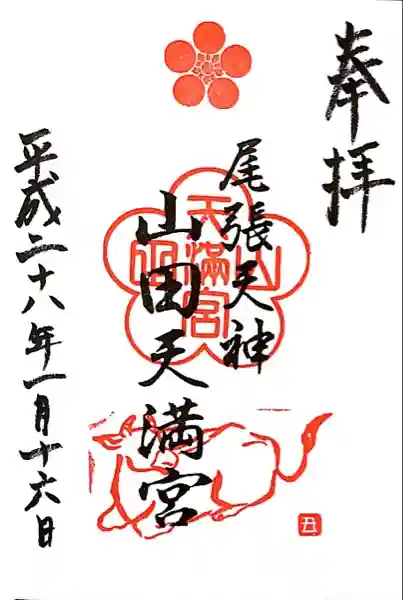 奉拝
尾張天神
山田天満宮
平成二十八年一月十六日
天満宮
丑